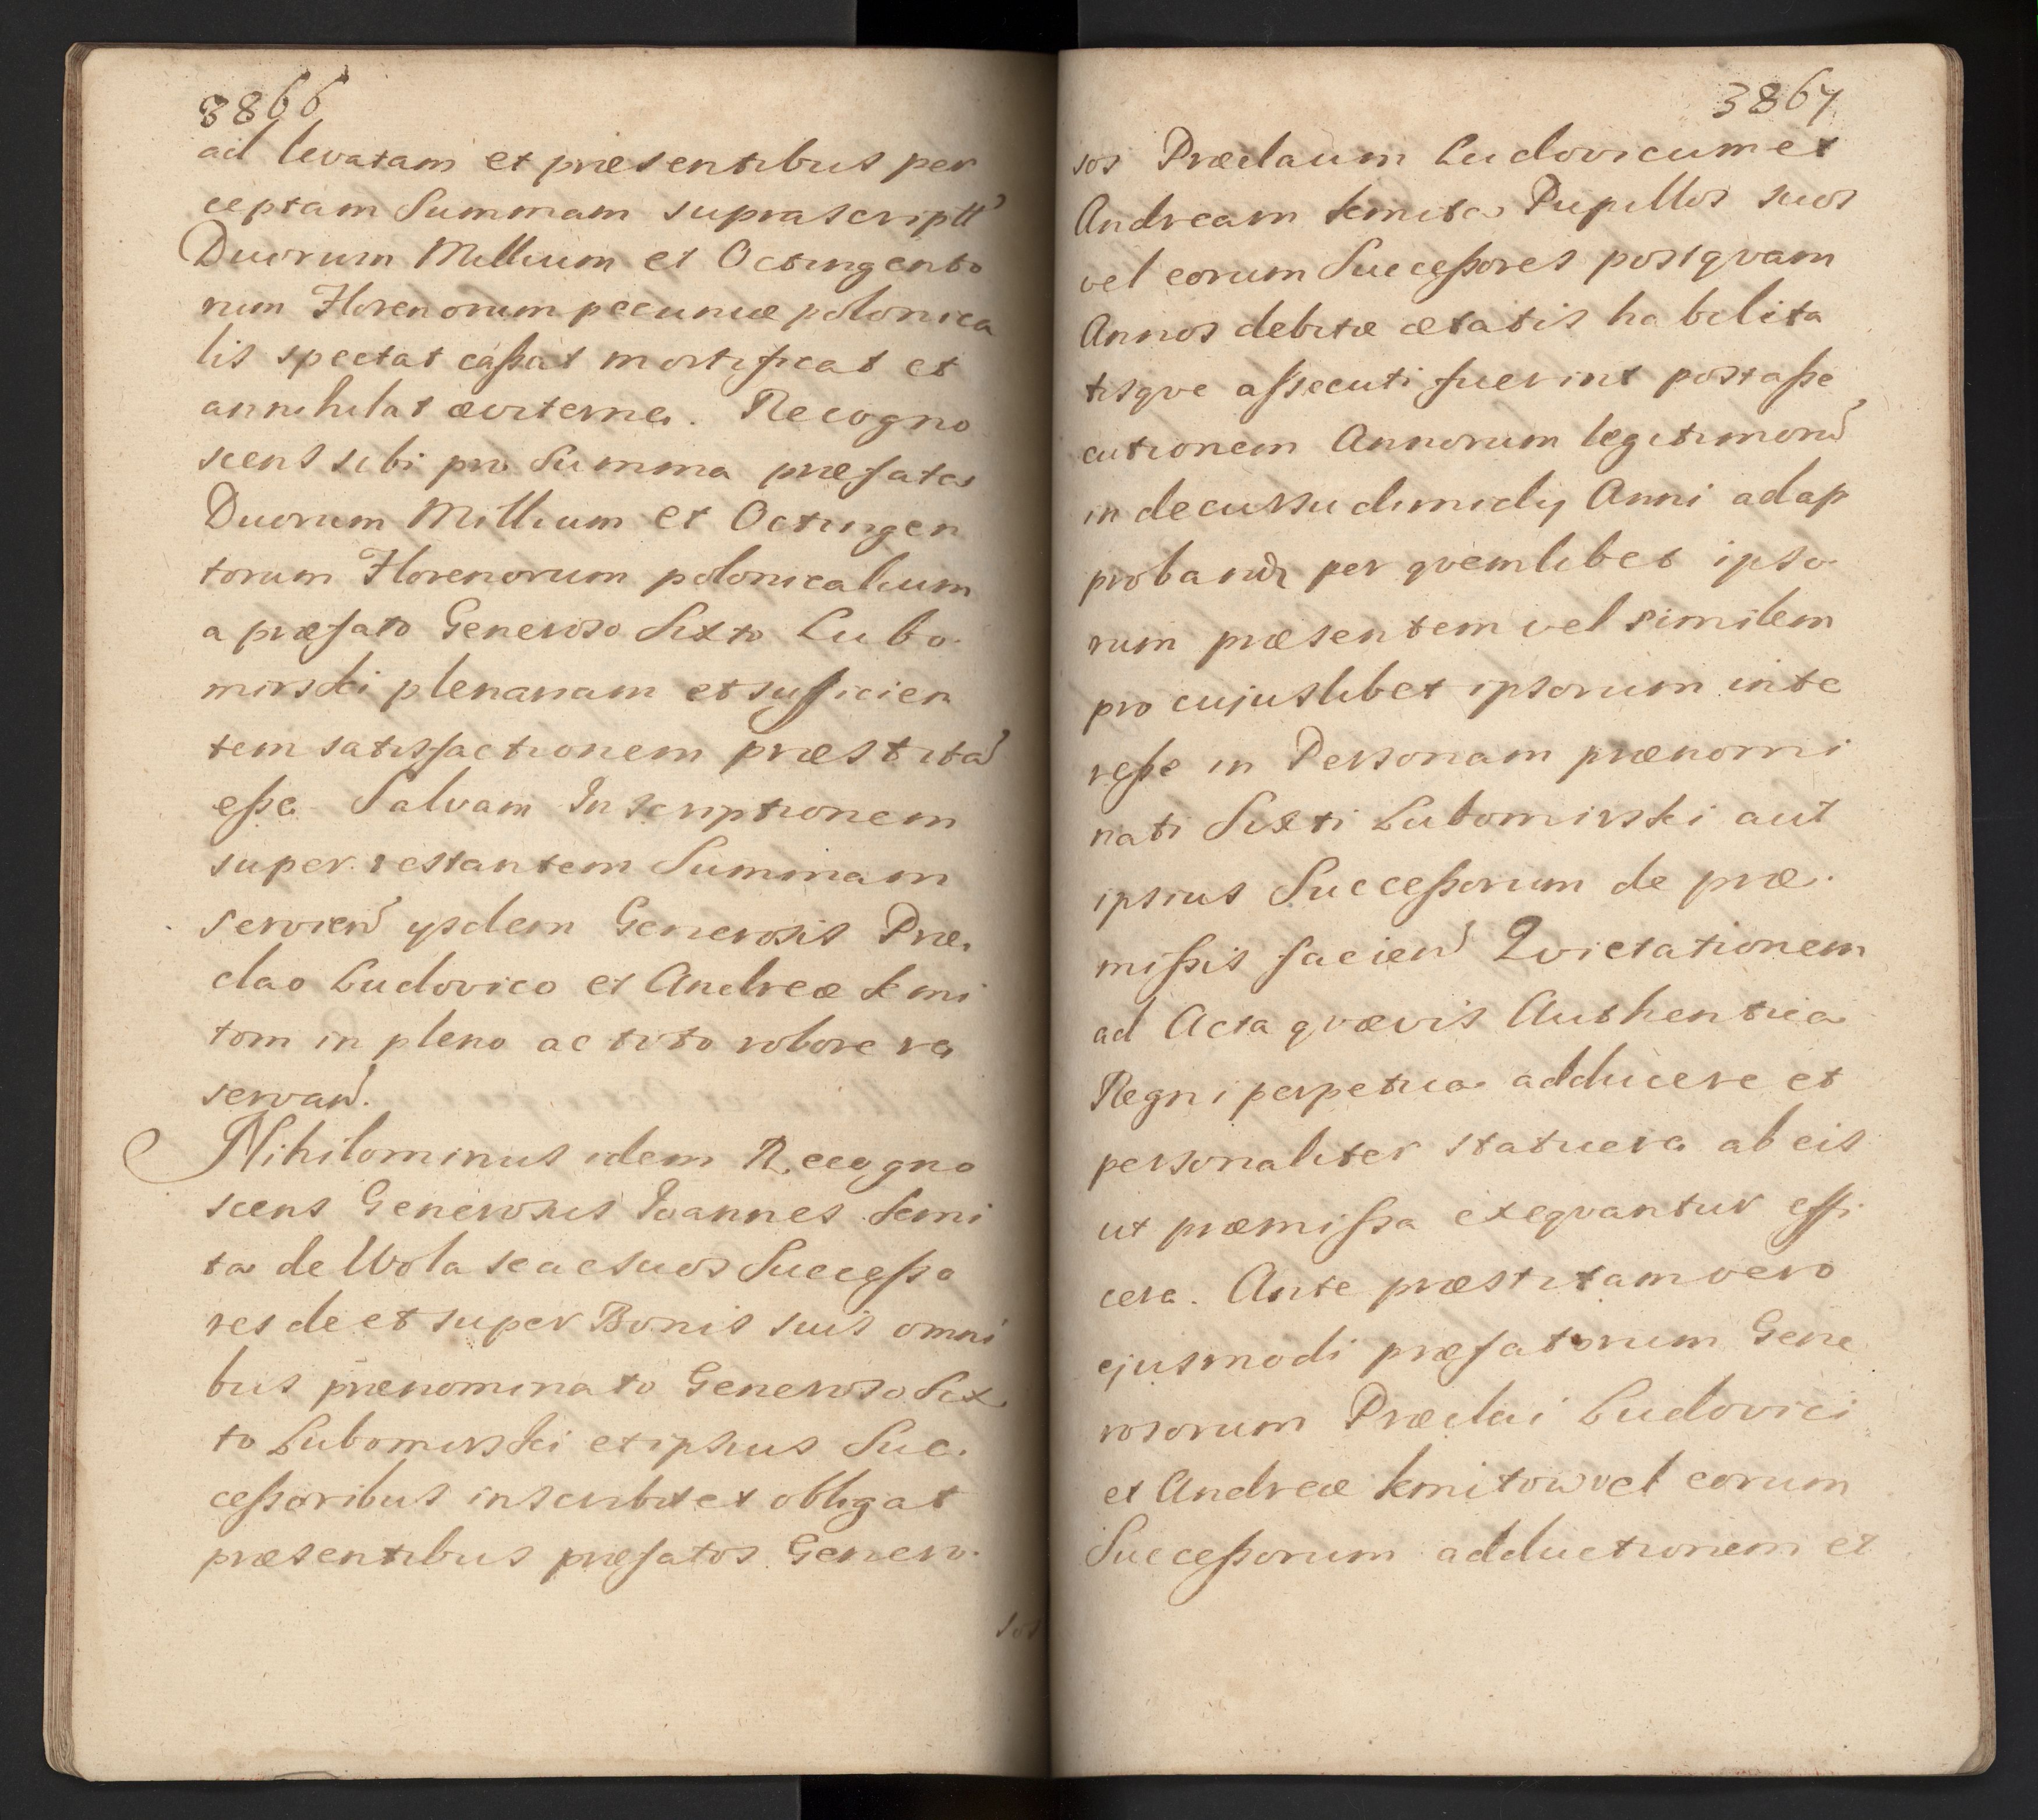 3866
ad levatam et præsentibus per
ceptam Summam suprascriptt
Duorum Millium et Octingento
rum Florenorum pecuniæ polonica
lis spectat caßat mortificat et
annihilat æviterne. Recogno
scens sibi pro Summa præfata
Duorum Millium et Octingen
torum Florenorum polonicalium
a præfato Generoso Sixto Lubo
mirski plenariam et sufficien
tem satisfactionem præstita
eße Salvam Inscriptionem
super restantem Summam
servien ysdem Generosis Præ
clao Ludovico et Andreæ Kmi
tom in pleno ac toto robore re
servan.
Nihilominus idem Recogno
scens Generosus Joannes Kmi
ta de Wola se ac suos Succeßo
res de et super Bonis suis omni
bus prænominato Generoso Six
to Lubomirski et ipsius Suc.
ceßoribus inscribit et obligat
præsentibus præfatos Genero.
sos
3867
sos Præclaum Ludovicum et
Andream Kmita Pupillos suos
vel eorum Succeßores postqvam
Annos debitæ ætatis habilita
tisqve assecuti fuerint post aße
cutionem Annorum legitimor
in decursu dimidy Anni ad ap
proband per qvemlibet ipso
rum præsentem vel similem
pro cujuslibet ipsorum inte
reße in Personam prænomi
nati Sixti Lubomirski aut
ipsius Succeßorum de præ.
mißis facien Qvietationem
ad Acta qvævis Authentica
Regni perpetua adducere et
personaliter statuere ab eis
ut præmißa exeqvantur effi
cere. Ante præstitam vero
ejusmodi præfatorum Gene
rosorum Præclai Ludovici
et Andreæ Kmitow vel eorum
Succeßorum adductionem et